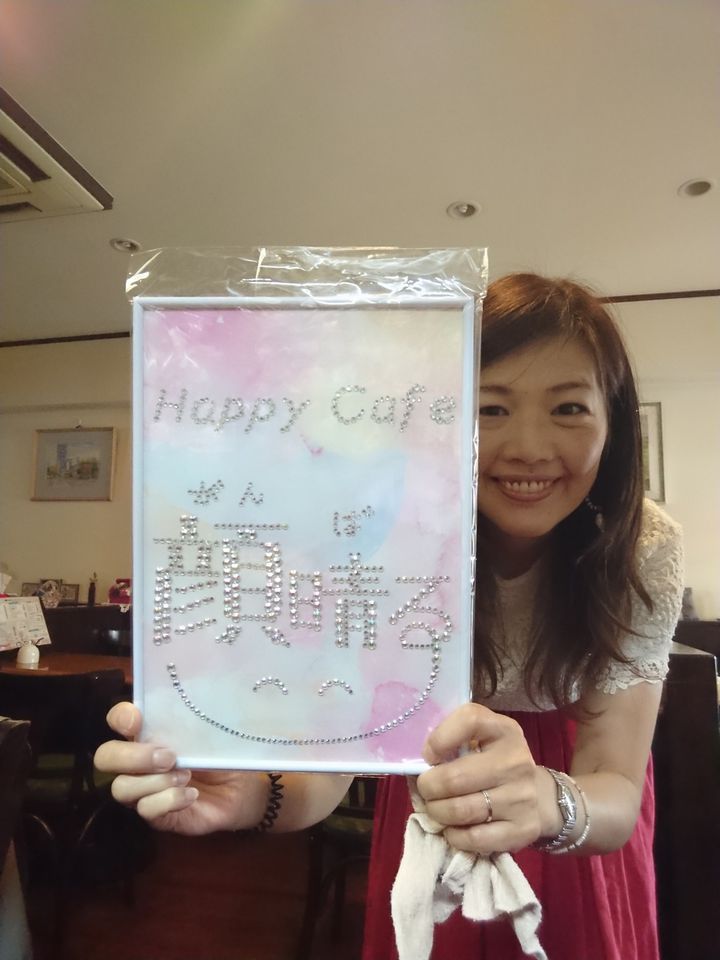 Happy Cafe
がん ば
顔晴る